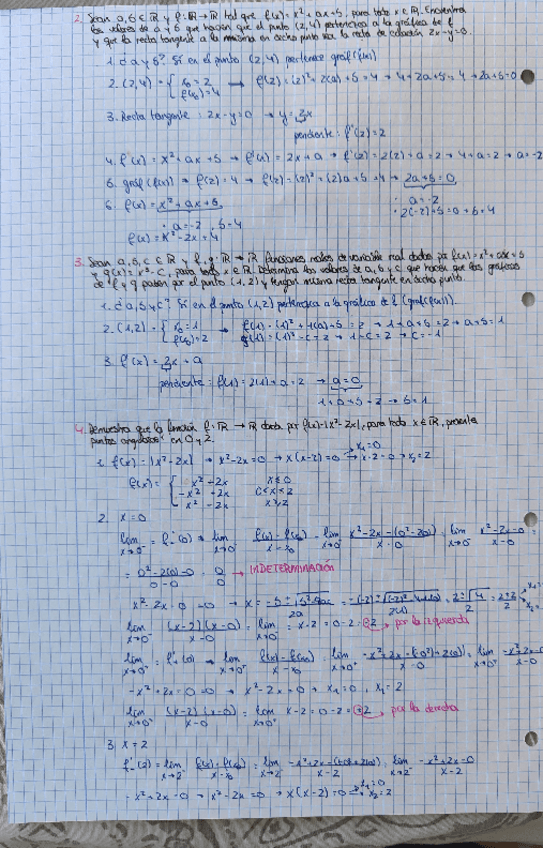 2. Sean a, b ∈ ℝ y f: ℝ → ℝ tal que f(x) = x² + ax + b, para todo x ∈ ℝ. Encuentra
los valores de a y b que hacen que el punto (2,4) pertenezca a la gráfica de f
y que la recta tangente a la misma en dicho punto sea la recta de ecuación 2x - y = 0.
1. ¿a y b? Si en el punto (2,4) pertenece graf(f(x))
2. (2,4) = { x₀ = 2 f(x₀) = 4 → f(2) = (2)² + 2(a) + b = 4 → 4 + 2a + b = 4 → 2a + b = 0
3. Recta tangente : 2x - y = 0 → y = 2x
pendiente : f'(2) = 2
4. f(x) = x² + ax + b → f'(x) = 2x + a → f'(2) = 2(2) + a = 2 → 4 + a = 2 → a = -2
5. graf(f(x)) → f(2) = 4 → f(2) = (2)² + (2)a + b = 4 → 2a + b = 0
6. f(x) = x² + ax + b, · a = -2
· 2(-2) + b = 0 → b = 4
· a = -2, b = 4
f(x) = x² - 2x + 4
3. Sean a, b, c ∈ ℝ y f, g: ℝ → ℝ funciones reales de variable real dadas por f(x) = x² + ax + b
y g(x) = x³ - c, para todo x ∈ ℝ. Determina los valores de a, b y c que hacen que las gráficas
de f y g pasen por el punto (1,2) y tengan misma recta tangente en dicho punto.
1. ¿a, b y c? Si en el punto (1,2) pertenezca a la gráfica de f (graf(f(x))).
2. (1,2) = { x₀ = 1 f(x₀) = 2 → f(1) = (1)² + 1(a) + b = 2 → 1 + a + b = 2 → a + b = 1
g(1) = (1)³ - c = 2 → 1 - c = 2 → c = -1
3. f'(x) = 2x + a
pendiente : f'(1) = 2(1) + a = 2 → a = 0
1 + 0 + b = 2 → b = 1
4. Demuestra que la función f: ℝ → ℝ dada por f(x) = |x² - 2x|, para todo x ∈ ℝ, presenta
puntos angulosos en 0 y 2.
1. f(x) = |x² - 2x| → x² - 2x = 0 → x(x-2) = 0 → x₁ = 0 x - 2 = 0 → x₂ = 2
f(x) = { x² - 2x x ≤ 0
-x² + 2x 0 < x < 2
x² - 2x x ≥ 2
2. x = 0
lim x→0⁻ = f'₋(0) → lim x→0⁻ f(x) - f(x₀) / x - x₀ = lim x→0⁻ x² - 2x - (0² - 2(0)) / x - 0 = lim x→0⁻ x² - 2x - 0 / x - 0 =
= 0² - 2(0) - 0 / 0 - 0 = 0/0 → INDETERMINACIÓN
x² - 2x - 0 = 0 → x = -b ± √b² - 4ac / 2a = -(-2) ± √(-2)² - 4(1)(0) / 2(1) = 2 ± √4 / 2 = 2 ± 2 / 2
lim x→0⁻ (x-2)(x-0) / x - 0 = lim x→0⁻ = x - 2 = 0 - 2 = -2 → por la izquierda
lim x→0⁺ = f'₊(0) → lim x→0⁺ f(x) - f(x₀) / x - x₀ = lim x→0⁺ -x² + 2x - (-(0²) + 2(0)) / x - 0 = lim x→0⁺ -x² + 2x - 0 / x - 0
-x² + 2x - 0 = 0 → x² - 2x = 0 → x₁ = 0, x₂ = 2
lim x→0⁺ (x-2)(x-0) / x - 0 = lim x→0⁺ x - 2 = 0 - 2 = +2 → por la derecha
3. x = 2
f'₋(2) = lim x→2⁻ f(x) - f(x₀) / x - x₀ = lim x→2⁻ -x² + 2x - / x - 2 = lim x→2⁻ -x² + 2x - 0 / x - 2
-x² + 2x - 0 → x² - 2x = 0 → x(x-2) = 0 → x₁ = 0 x₂ = 2